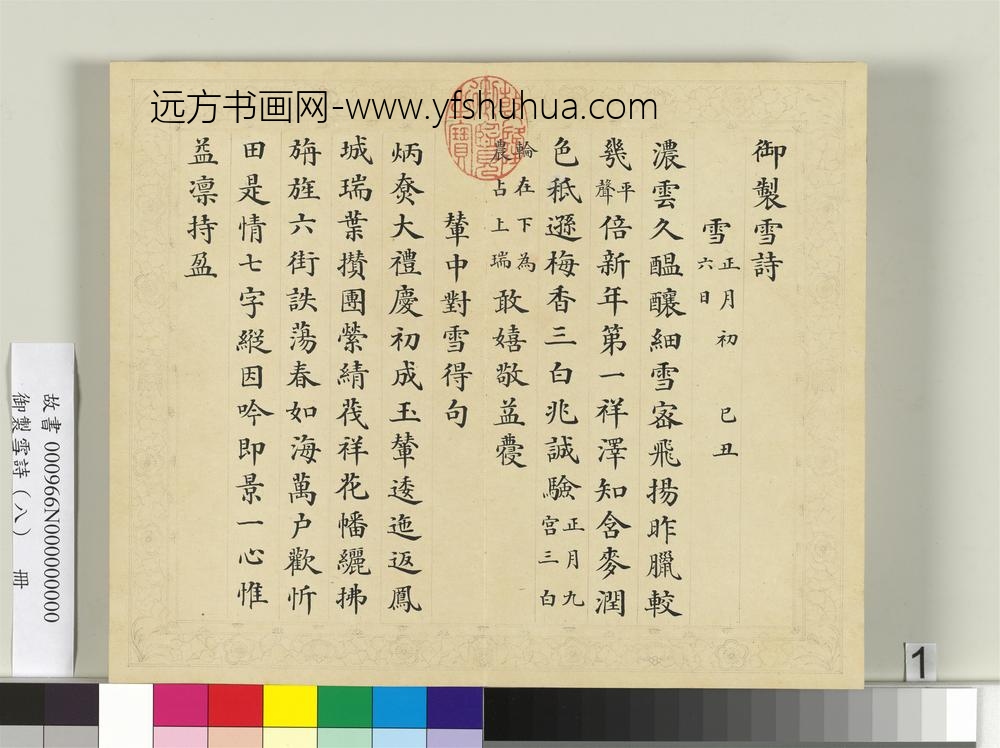 远方书画网-www.yfshuhua.com
御製雪詩
雪 正月初六日 己丑
濃雲久醖釀細雪宻飛揚昨臘較
幾平聲倍新年第一祥澤知含麥潤
色秖遜梅香三白兆誠驗正月九宫三白
輪在下為農占上瑞敢嬉敬益蘉
輦中對雪得句
炳烾大禮慶初成玉輦逶迤返鳳
城瑞葉攅團縈綪茷祥花幡纚拂
旃旌六街詄蕩春如海萬户歡忻
田是情七字縱因吟即景一心惟
益凛持盈
故書 000966N000000000
御製雪詩（八） 冊
1